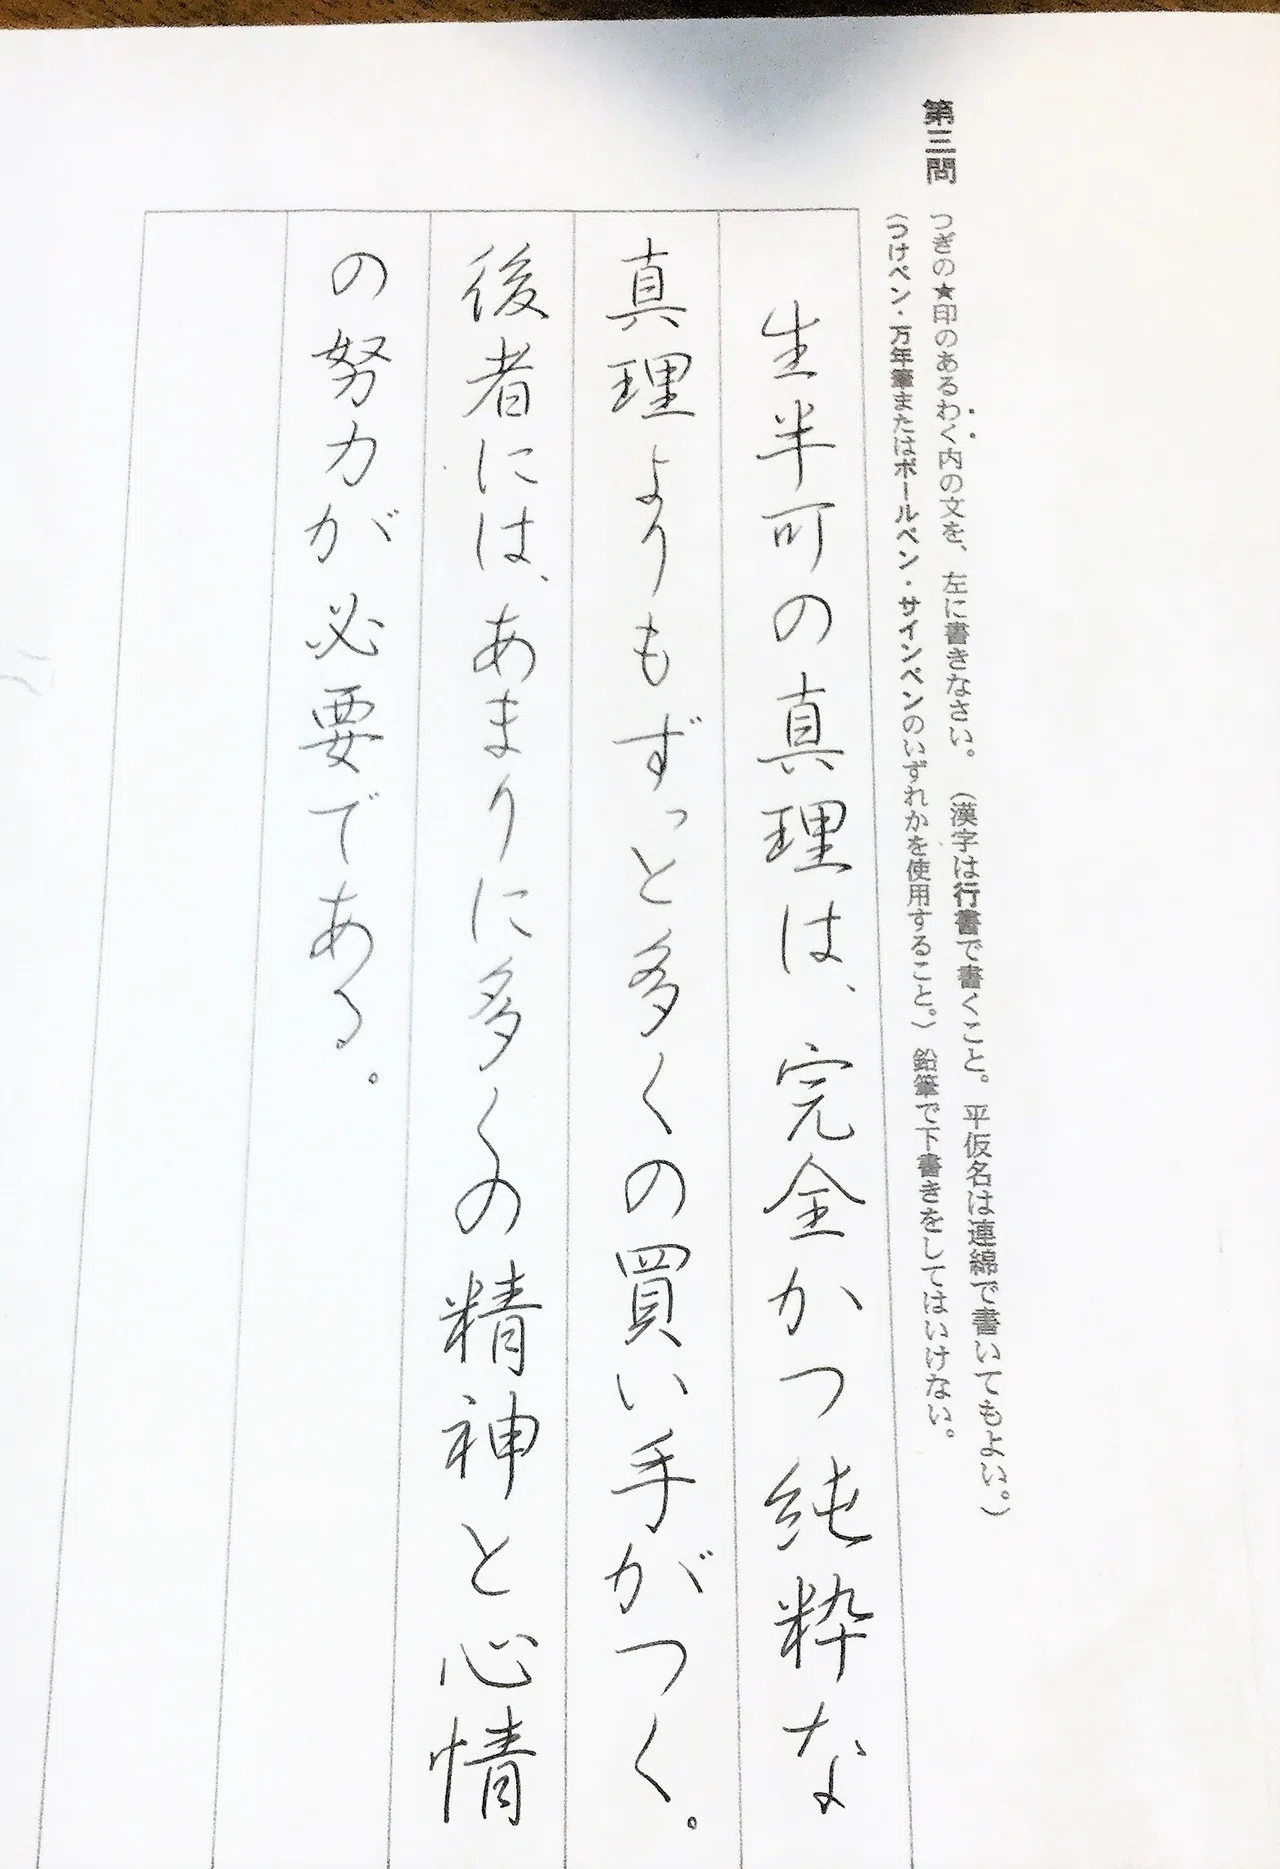 第三問
つぎの★印のあるわく内の文を、左に書きなさい。（漢字は行書で書くこと。平仮名は連綿で書いてもよい。）
（つけペン・万年筆またはボールペン・サインペンのいずれかを使用すること。）鉛筆で下書きをしてはいけない。
生半可の真理は、完全かつ純粋な
真理よりもずっと多くの買い手がつく。
後者には、あまりに多くの精神と心情
の努力が必要である。